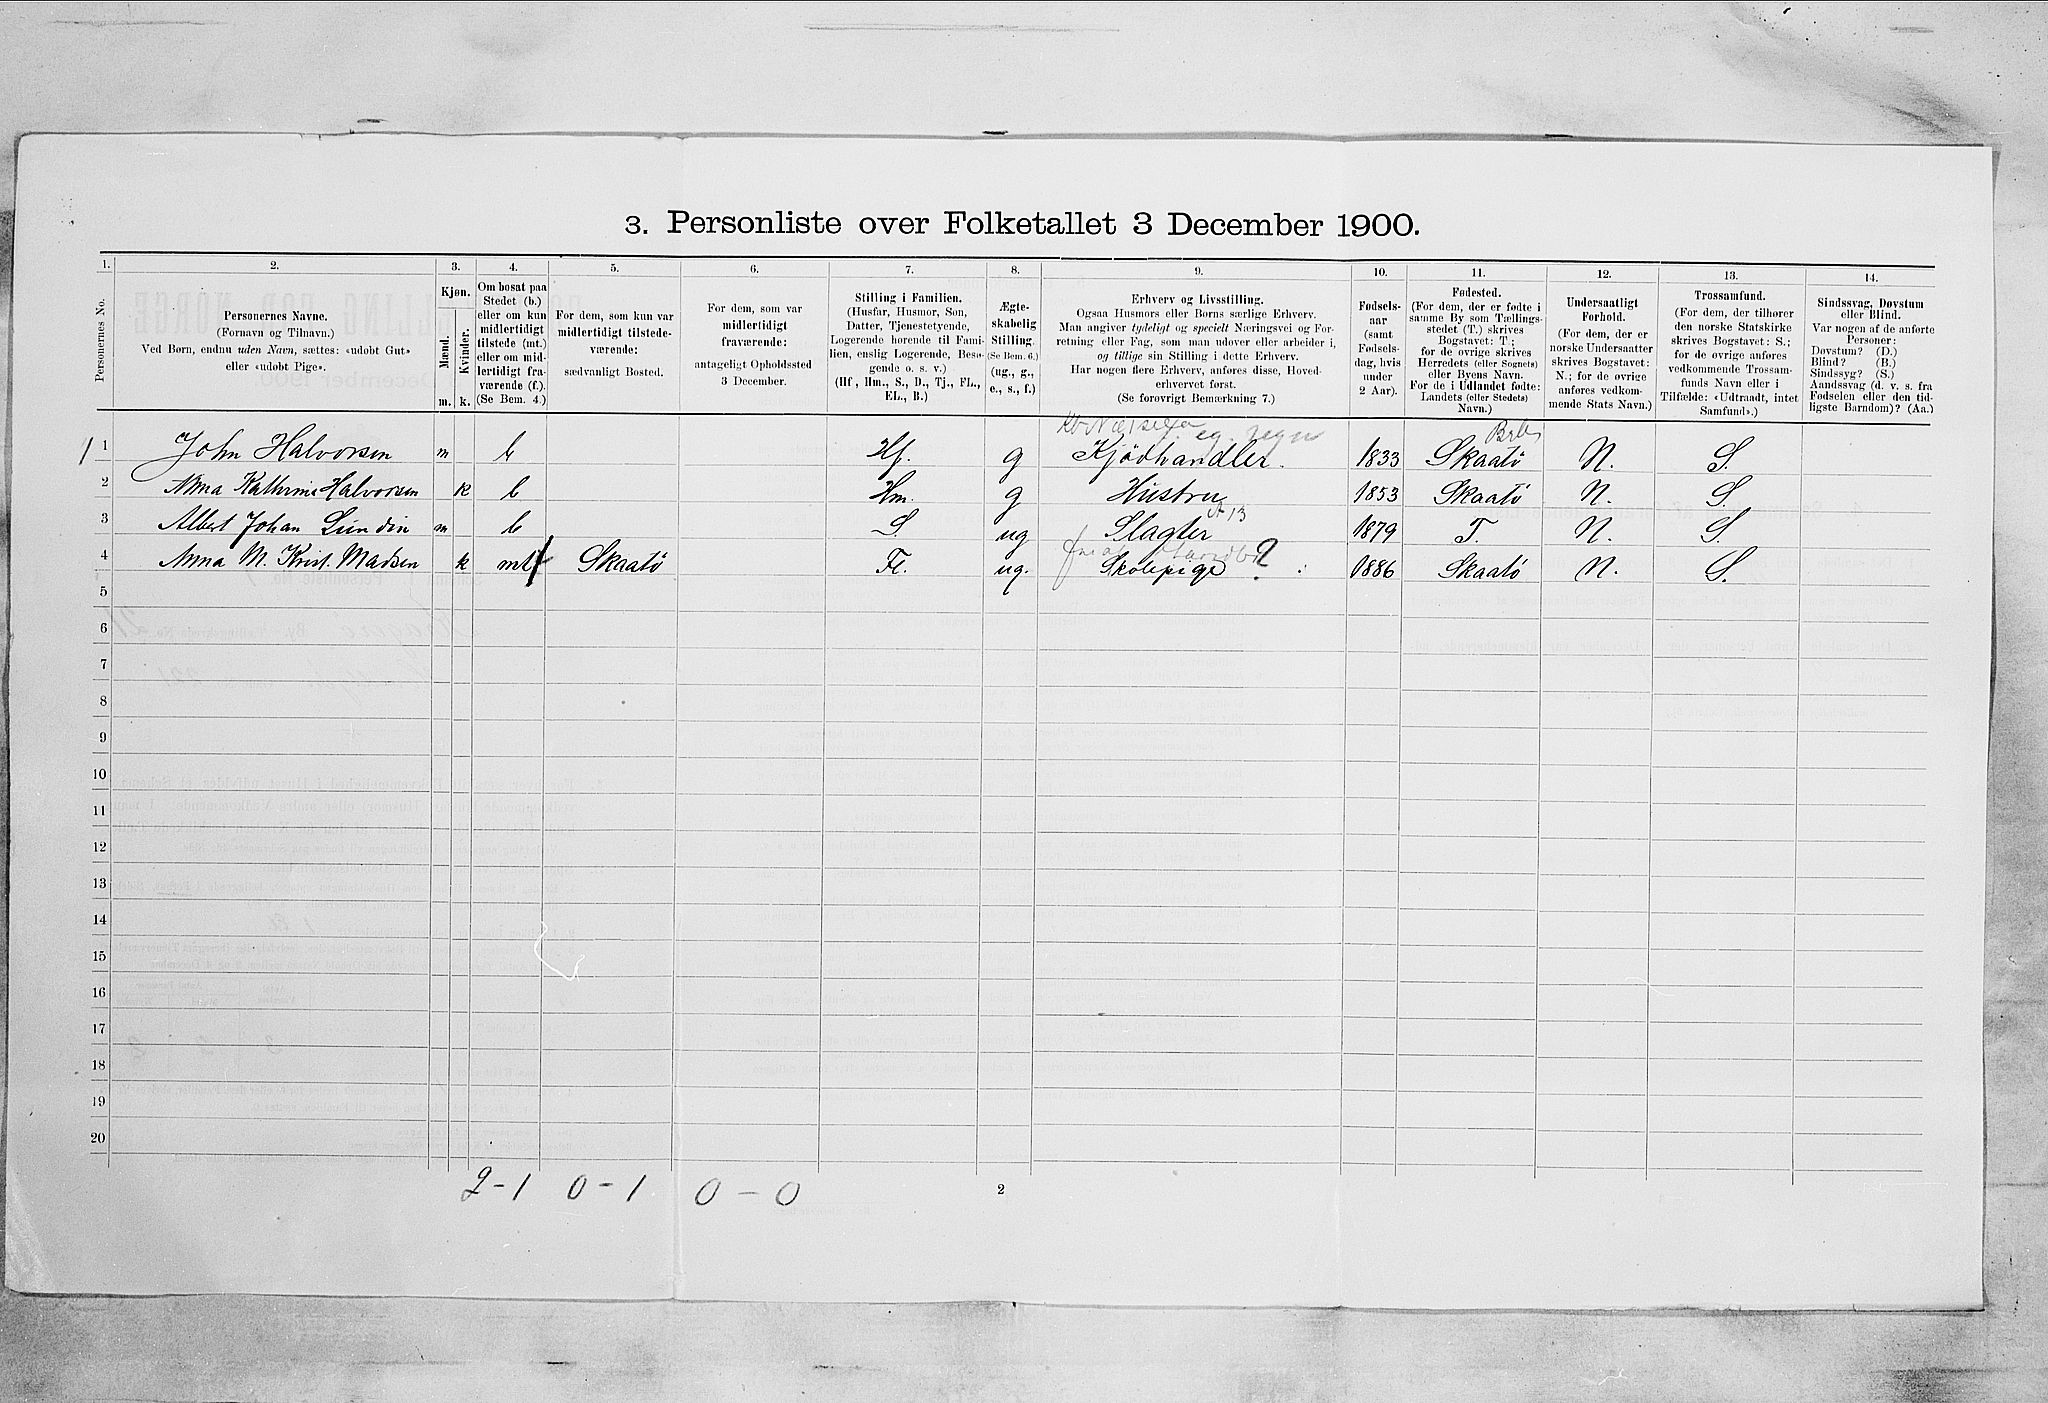 3. Personliste over Folketallet 3 December 1900.
1. 2. 3. 4. 5. 6. 7. 8. 9. 10. 11. 12. 13. 14.
Personernes No.
Personernes Navne.
(Fornavn og Tilnavn.)
Ved Børn, endnu uden Navn, sættes: «udøbt Gut»
eller «udøbt Pige».
Kjøn.
Mænd.
Kvinder.
m. k.
Om bosat paa
Stedet (b.)
eller om kun
midlertidigt
tilstede (mt.)
eller om mid-
lertidigt fra-
værende (f.)
(Se Bem. 4.)
For dem, som kun var
midlertidigt tilstede-
værende:
sædvanligt Bosted.
For dem, som var
midlertidigt
fraværende:
antageligt Opholdssted
3 December.
Stilling i Familien.
(Husfar, Husmor, Søn,
Datter, Tjenestetyende,
Logerende hørende til Fami-
lien, enslig Logerende, Besø-
gende o. s. v.)
(Hf, Hm., S., D., Tj., FL.,
EL., B.)
Ægte-
skabelig
Stilling.
(Se Bem. 6.)
(ug., g.,
e., s., f.)
Erhverv og Livsstilling.
Ogsaa Husmors eller Børns særlige Erhverv.
Man angiver tydeligt og specielt Næringsvei og For-
retning eller Fag, som man udøver eller arbeider i,
og tillige sin Stilling i dette Erhverv.
Har nogen flere Erhverv, anføres disse, Hoved-
erhvervet først.
(Se forøvrigt Bemærkning 7.)
Fødsels-
aar
(samt
Fødsels-
dag, hvis
under
2 Aar).
Fødested.
(For dem, der er fødte i
samme By som Tællings-
stedet (T.) skrives
Bogstavet: T.;
for de øvrige skrives
Herredets (eller Sognets)
eller Byens Navn.
For de i Udlandet fødte:
Landets (eller Stedets)
Navn.)
Undersaatligt
Forhold.
(For dem, der er
norske Undersaatter
skrives Bogstavet:
N.; for de øvrige
anføres vedkom-
mende Stats Navn.)
Trossamfund.
(For dem, der tilhører
den norske Statskirke
skrives Bogstavet: S.;
for de øvrige anføres
vedkommende Trossam-
funds Navn eller i
Tilfælde: «Udtraadt, intet
Samfund».)
Sindssvag, Døvstum
eller Blind.
Var nogen af de anførte
Personer:
Døvstum? (D.)
Blind? (B.)
Sindssyg? (S.)
Aandssvag (d. v. s. fra
Fødselen eller den tid-
ligste Barndom)? (Aa.)
1 John Halvorsen m b Hf. g Kjødhandler. 1833 Skaatö N. S.
2 Anna Kathrine Halvorsen k b Hm. g Hustru 1853 Skaatö N. S.
3 Albert Johan Lundin m b S. ug Slagter 1879 T. N. S.
4 Anna M. Krist. Madsen k mt Skaatö Fl. ug. Skolepige ? 1886 Skaatö N. S.
5
6
7
8
9
10
11
12
13
14
15
16
17
18
19
20
2 - 1 0 - 1 0 - 0
2